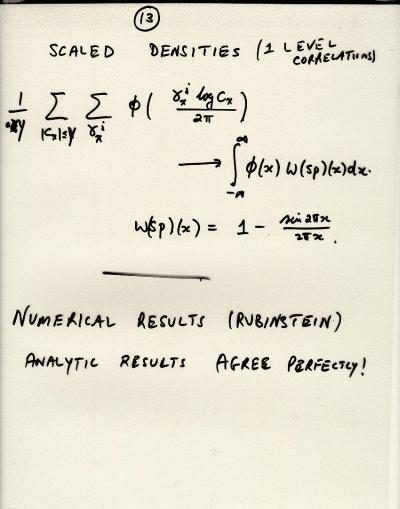 13
SCALED DENSITIES (1 LEVEL CORRELATIONS)
1/#Y ∑ |C_χ|≤Y ∑ γ_χ^i φ( γ_χ^i log C_χ / 2π )
→ ∫_{-∞}^{∞} φ(x) W(sp)(x)dx.
W(sp)(x) = 1 - sin 2πx / 2πx .
NUMERICAL RESULTS (RUBINSTEIN)
ANALYTIC RESULTS AGREE PERFECTLY!